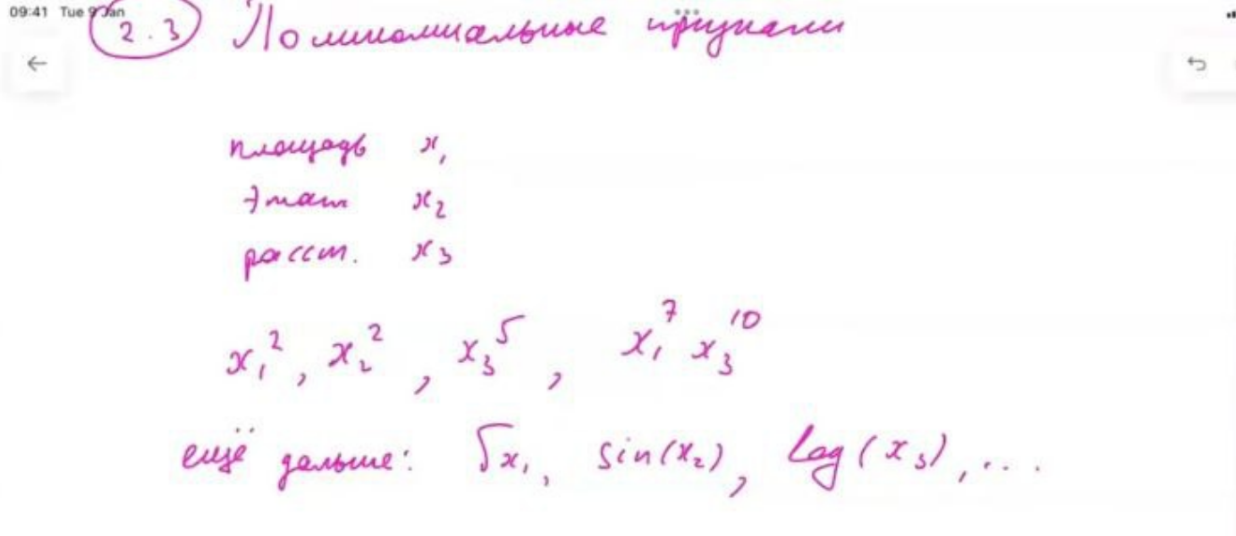 09:41 Tue 9 Jan
2.3 Полиномиальные признаки
площадь x₁
этаж x₂
расст. x₃
x₁², x₂², x₃⁵, x₁⁷ x₃¹⁰
ещё дальше: √x₁, sin(x₂), log(x₃), ...